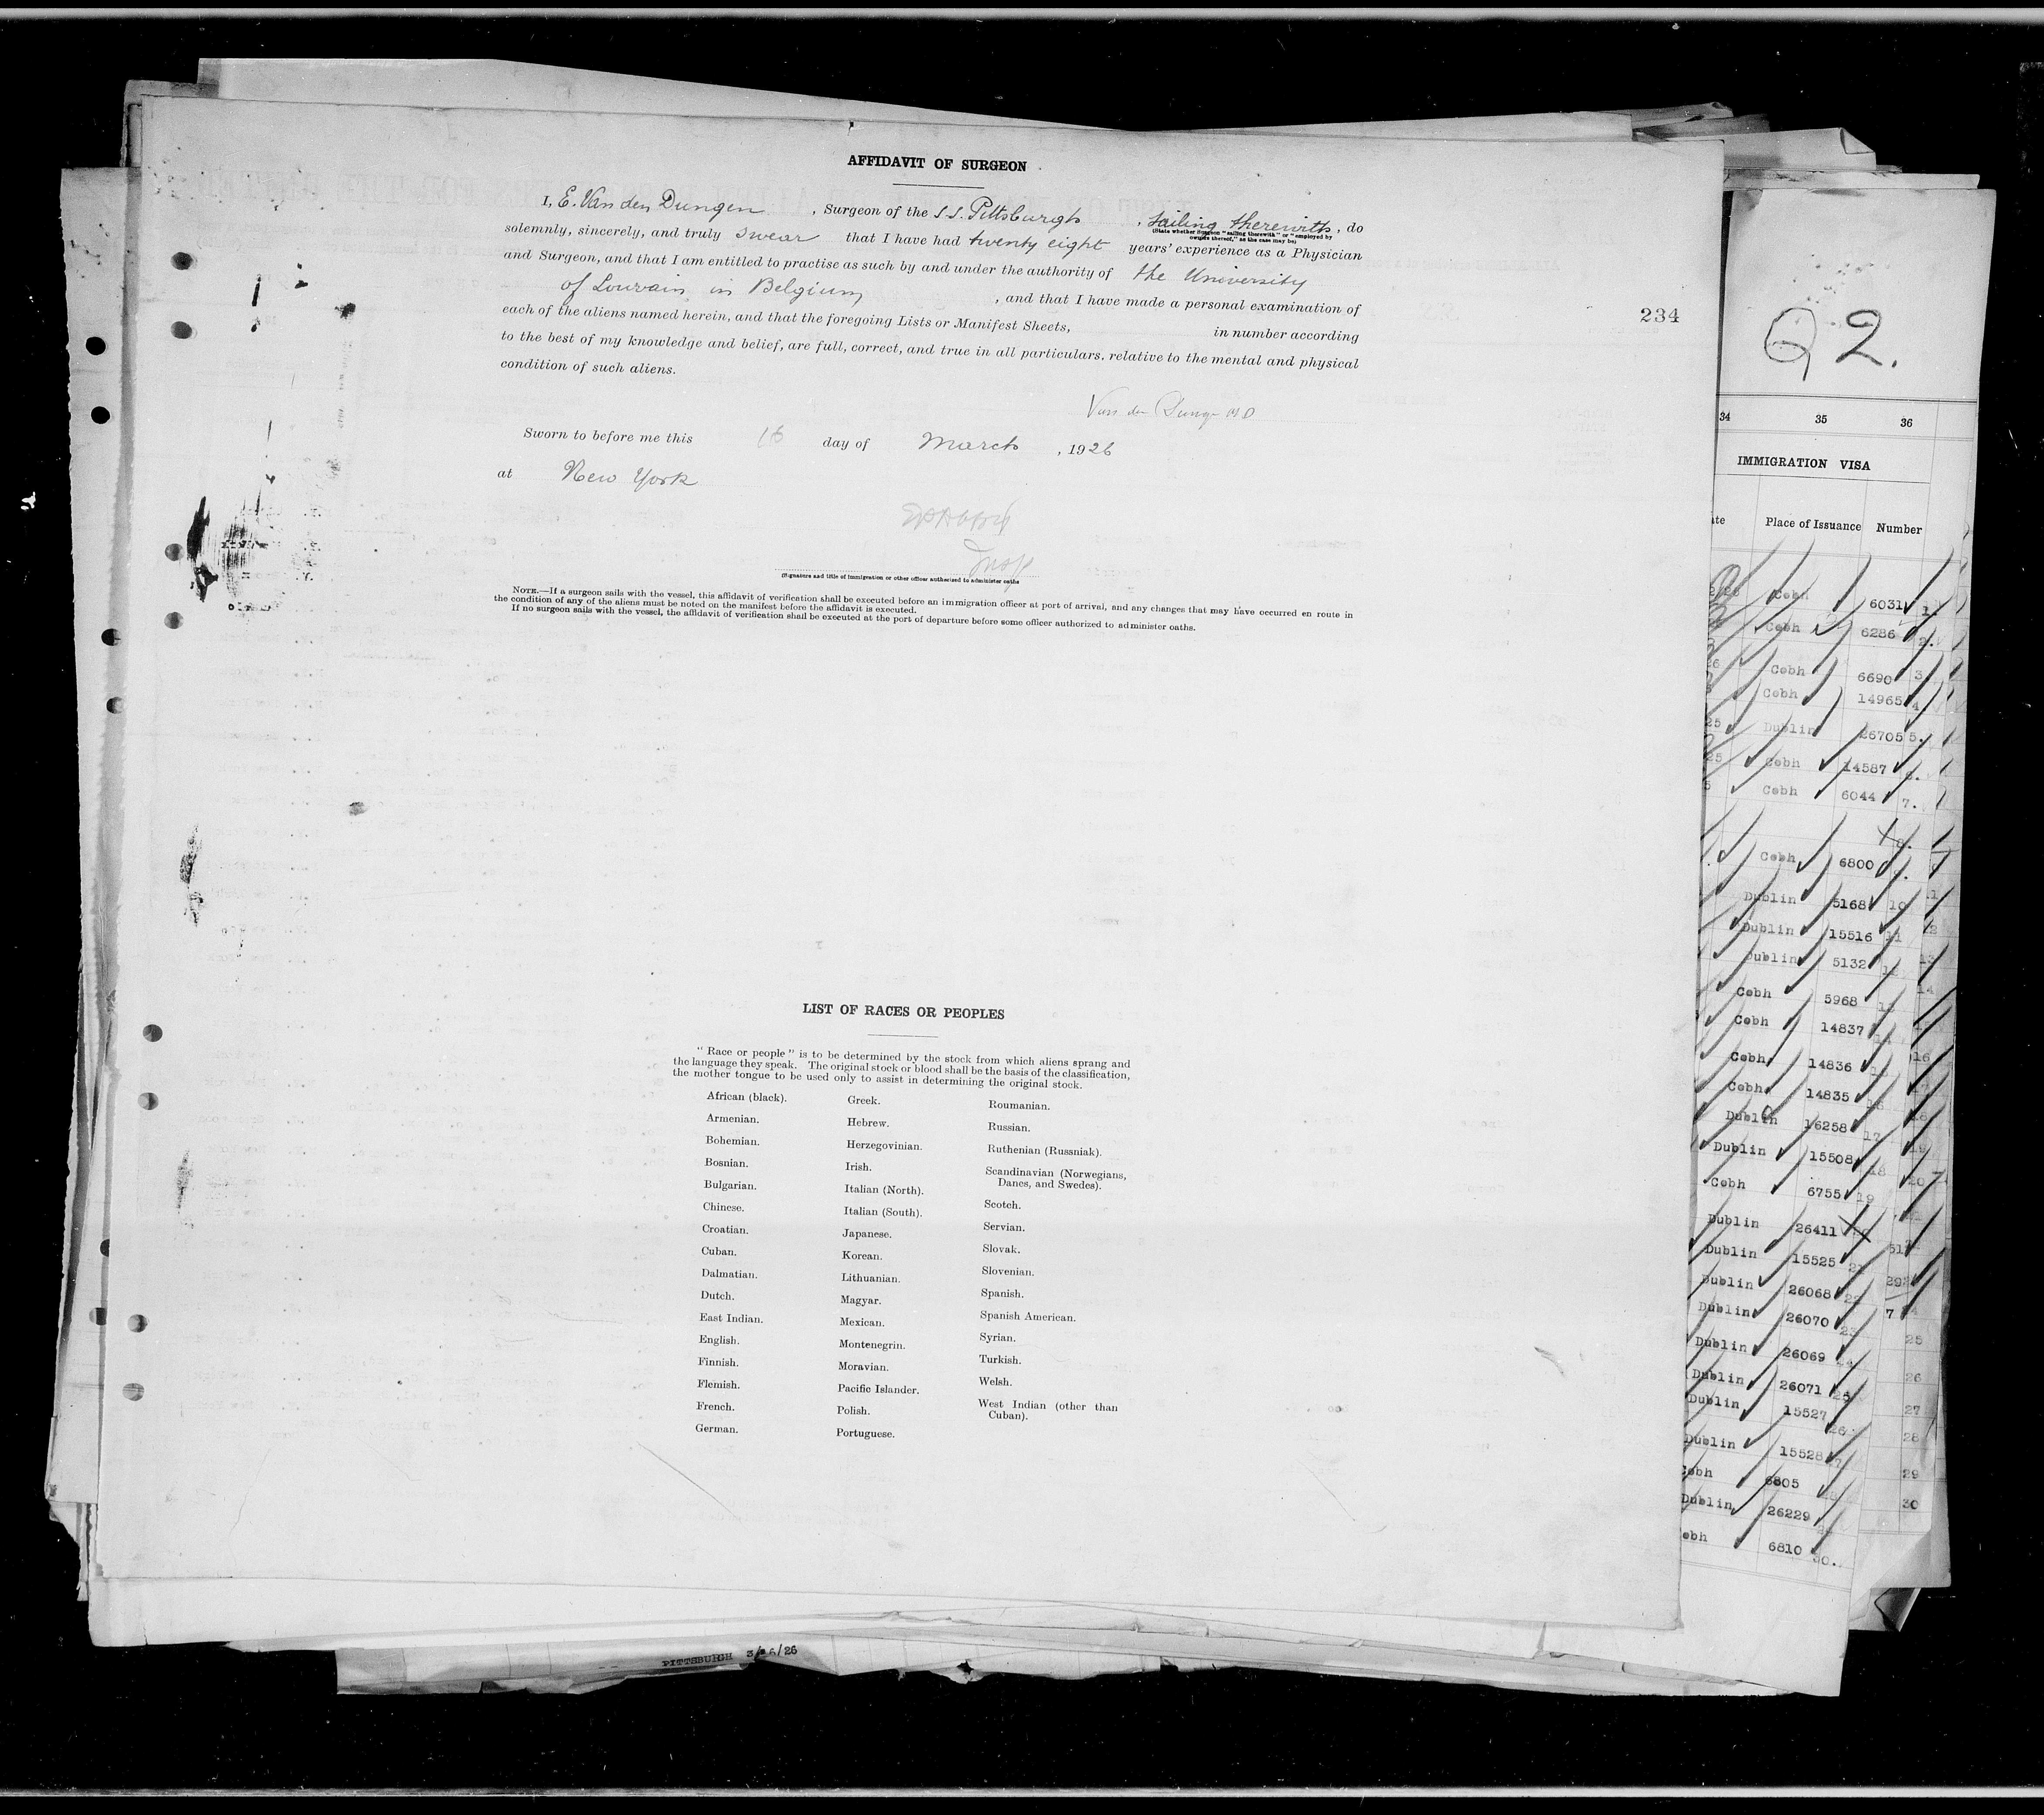 AFFIDAVIT OF SURGEON
I, E. Van den Dungen , Surgeon of the S.S. Pittsburgh , sailing therewith, do
(State whether Surgeon "sailing therewith" or "employed by
owners thereof," as the case may be)
solemnly, sincerely, and truly swear that I have had twenty eight years' experience as a Physician
and Surgeon, and that I am entitled to practise as such by and under the authority of the University
of Louvain in Belgium , and that I have made a personal examination of
each of the aliens named herein, and that the foregoing Lists or Manifest Sheets, in number according
to the best of my knowledge and belief, are full, correct, and true in all particulars. relative to the mental and physical
condition of such aliens.
Van den Dungen MD
Sworn to before me this 16 day of March , 1926
at New York
Insp
(Signature and title of immigration or other officer authorized to administer oaths
NOTE.—If a surgeon sails with the vessel, this affidavit of verification shall be executed before an immigration officer at port of arrival, and any changes that may have occurred en route in
the condition of any of the aliens must be noted on the manifest before the affidavit is executed.
If no surgeon sails with the vessel, the affidavit of verification shall be executed at the port of departure before some officer authorized to administer oaths.
234
LIST OF RACES OR PEOPLES
"Race or people" is to be determined by the stock from which aliens sprang and
the language they speak. The original stock or blood shall be the basis of the classification,
the mother tongue to be used only to assist in determining the original stock.
African (black).
Armenian.
Bohemian.
Bosnian.
Bulgarian.
Chinese.
Croatian.
Cuban.
Dalmatian.
Dutch.
East Indian.
English.
Finnish.
Flemish.
French.
German.
Greek.
Hebrew.
Herzegovinian.
Irish.
Italian (North).
Italian (South).
Japanese.
Korean.
Lithuanian.
Magyar.
Mexican.
Montenegrin.
Moravian.
Pacific Islander.
Polish.
Portuguese.
Roumanian.
Russian.
Ruthenian (Russniak).
Scandinavian (Norwegians,
Danes, and Swedes).
Scotch.
Servian.
Slovak.
Slovenian.
Spanish.
Spanish American.
Syrian.
Turkish.
Welsh.
West Indian (other than
Cuban).
Q 2.
34 35 36
IMMIGRATION VISA
Place of Issuance Number
Cobh 6031 1.
Cobh 6286 2.
Cobh 6690 3
Cobh 14965 4
Dublin 26705 5.
Cobh 14587 6.
Cobh 6044 7.
8.
Cobh 6800
Dublin 5168 10
Dublin 15516 11
Dublin 5132 12
Cobh 5968 13
Cobh 14837 14
Cobh 14836 15
Cobh 14835 16
Dublin 16258 17
Dublin 15508 18
Cobh 6755 19
Dublin 26411
Dublin 15525 21
Dublin 26068 22
Dublin 26070 23
Dublin 26069 24
Dublin 26071 25
Dublin 15527 26
Dublin 15528 27
Cobh 6805
Dublin 26229
Cobh 6810 30.
25
26
27
28
29
30
PITTSBURGH 3/16/26